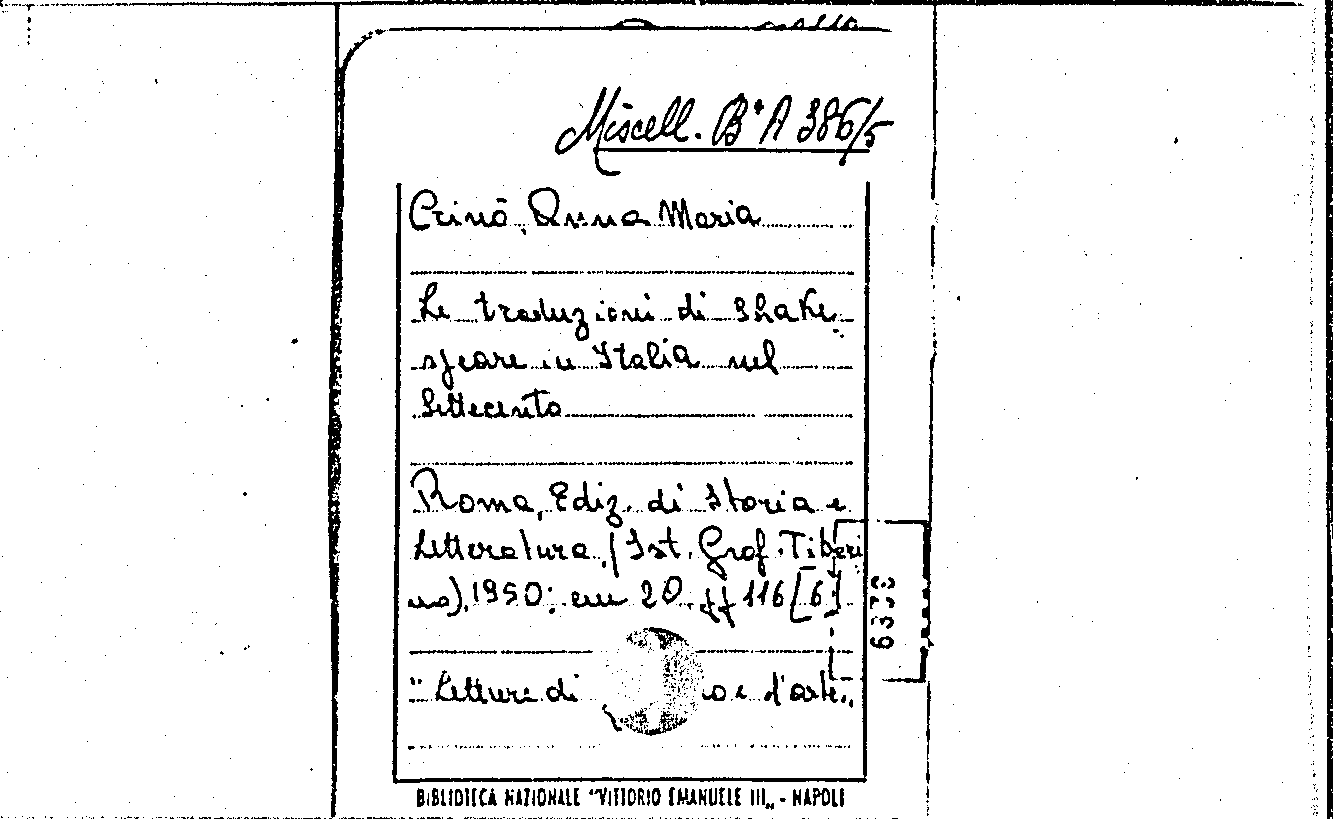 Miscell. B* A 386/5
Crinò, Anna Maria
Le traduzioni di Shake
speare in Italia nel
Settecento
Roma, Ediz. di Storia e
Letteratura (Ist. Graf. Tiberi
no), 1950; cm 20. pp 116 [6]
6373
"Letture di o e d'arte"
BIBLIOTECA NAZIONALE "VITTORIO EMANUELE III„ - NAPOLI